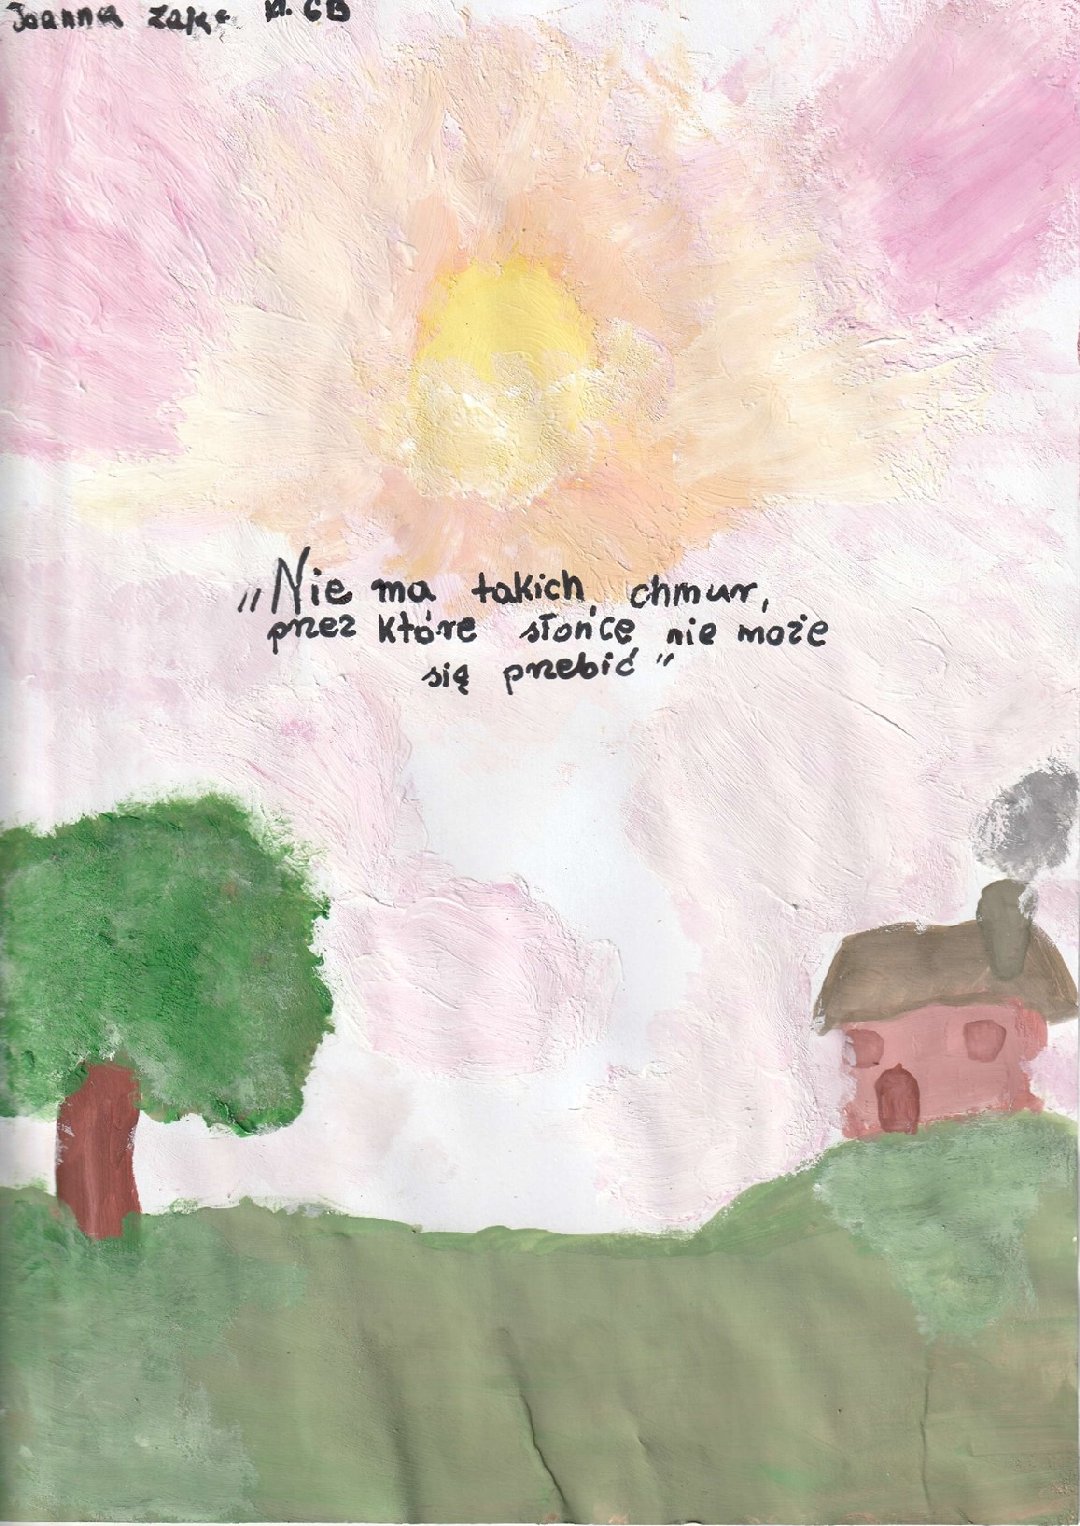 Joanna kl. 6B
„Nie ma takich chmur,
przez które słońce nie może
się przebić"